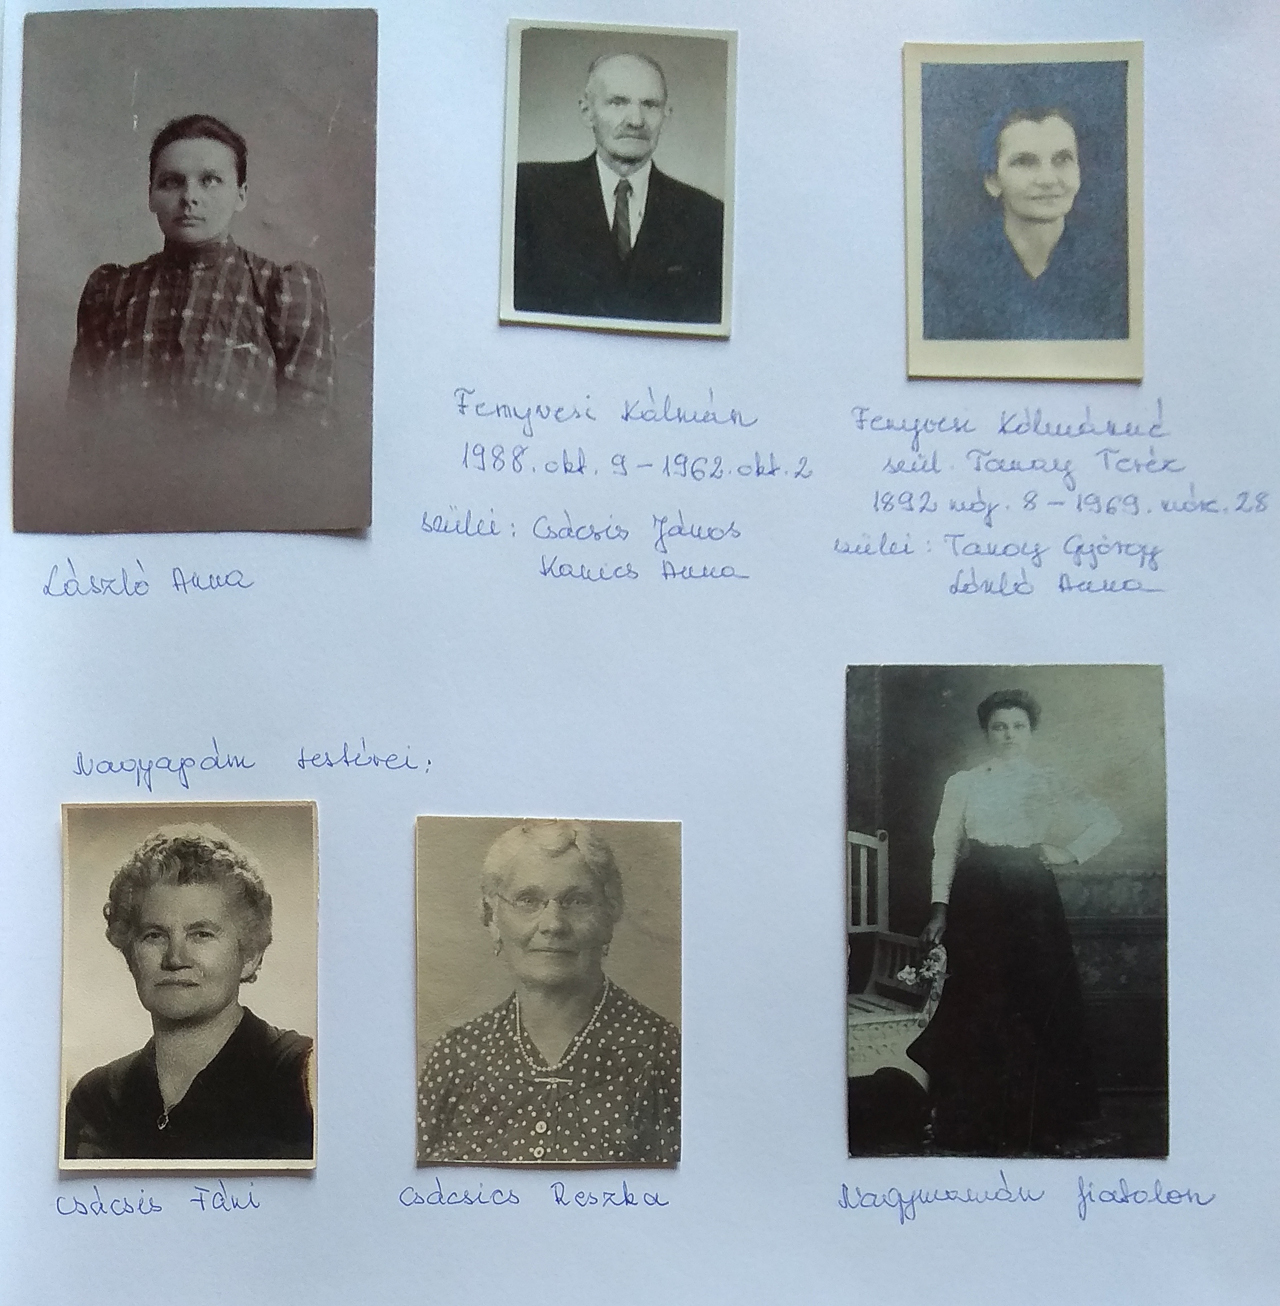 László Anna
Fenyvesi Kálmán
1988. okt. 9 - 1962. okt. 2
szülei: Csácsis János
Kanics Anna
Fenyvesi Kálmánné
szül. Tanay Teréz
1892 máj. 8 - 1969. márc. 28
szülei: Tanay György
László Anna
Nagyapám testvérei:
Csácsis Fáni
Csácsics Reszka
Nagymamám fiatalon